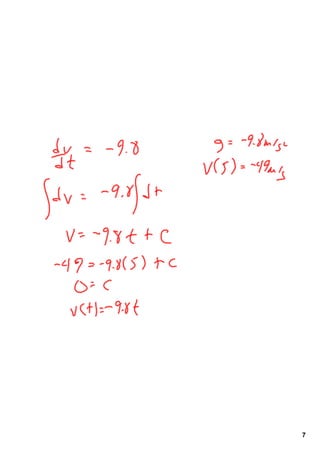 dv/dt = -9.8
g = -9.8m/s²
v(5) = -49m/s
∫dv = -9.8∫dt
v = -9.8t + C
-49 = -9.8(5) + C
0 = C
v(t) = -9.8t
7